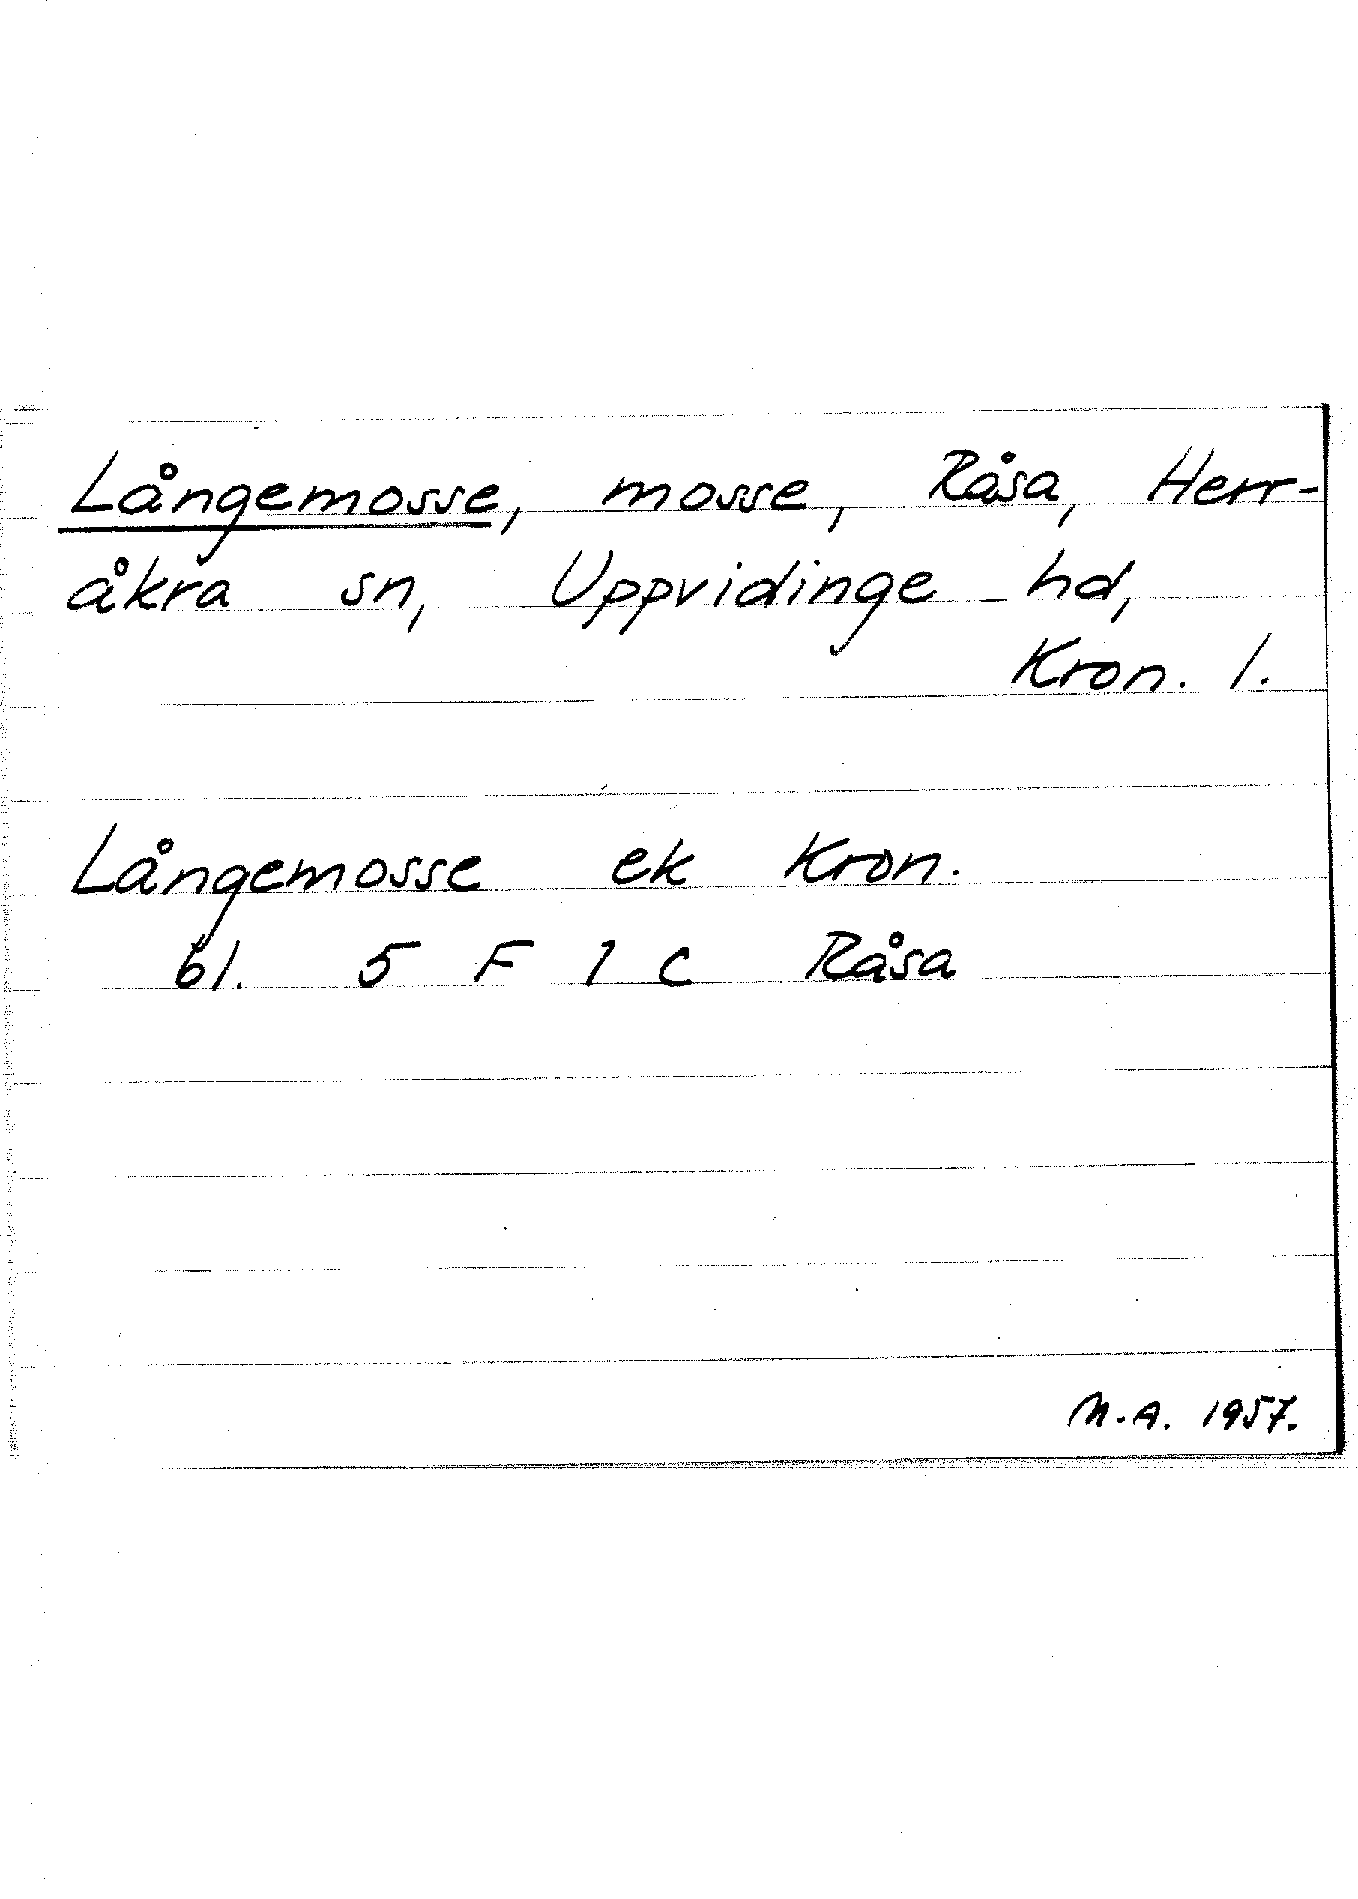 Långemosse, mosse, Råsa, Herr-
åkra sn, Uppvidinge hd,
Kron. l.
Långemosse ek Kron.
bl. 5 F 1 c Råsa
M.A. 1957.